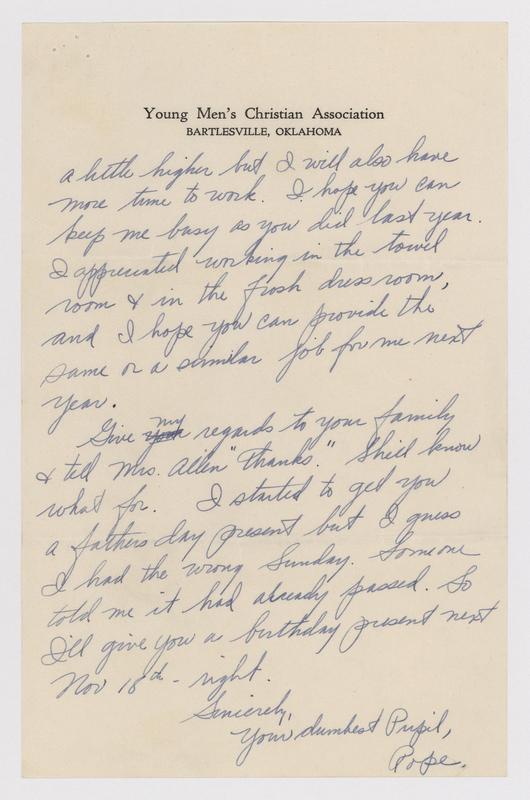 Young Men's Christian Association
BARTLESVILLE, OKLAHOMA
a little higher but I will also have
more time to work. I hope you can
keep me busy as you did last year.
I appreciated working in the towel
room & in the frosh dress room,
and I hope you can provide the
same or a similar job for me next
year.
Give your my regards to your family
& tell Mrs. Allen "Thanks." She'll know
what for. I started to get you
a fathers day present but I guess
I had the wrong Sunday. Someone
told me it had already passed. So
I'll give you a birthday present next
Nov 18th - right.
Sincerely,
Your dumbest Pupil,
Pope.